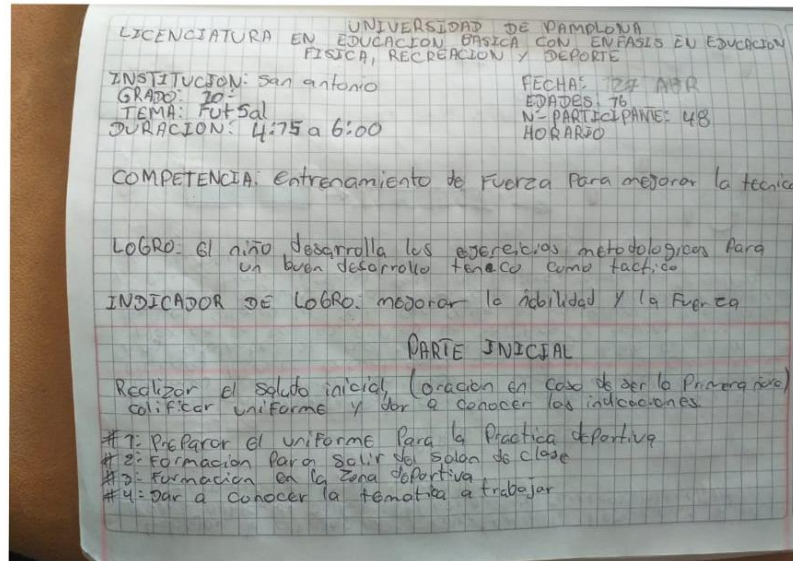 UNIVERSIDAD DE PAMPLONA
LICENCIATURA EN EDUCACION BASICA CON ENFASIS EN EDUCACION
FISICA, RECREACION Y DEPORTE
INSTITUCION: San antonio
FECHA: 27 ABR
GRADO: 10:
EDADES: 16
TEMA: Futsal
N- PARTICIPANTE: 48
DURACION: 4:15 a 6:00
HORARIO
COMPETENCIA: Entrenamiento de Fuerza Para mejorar la tecnica
LOGRO: El niño desarrolla los egereicios metodologicos Para
un buen desarrollo teneco como tactico
INDICADOR DE LOGRO: mejorar la habilidad y la Fuerza
PARTE INICIAL
Realizar el saludo inicial, (oracion en caso de ser la Primera hora)
calificar uniforme y dar a conocer las indicaciones.
#1: Preparar el uniforme Para la Practica deportiva
#2: Formacion Para salir del salon de clase
#3: Formacion en la zona deportiva
#4: Dar a conocer la tematica a trabajar